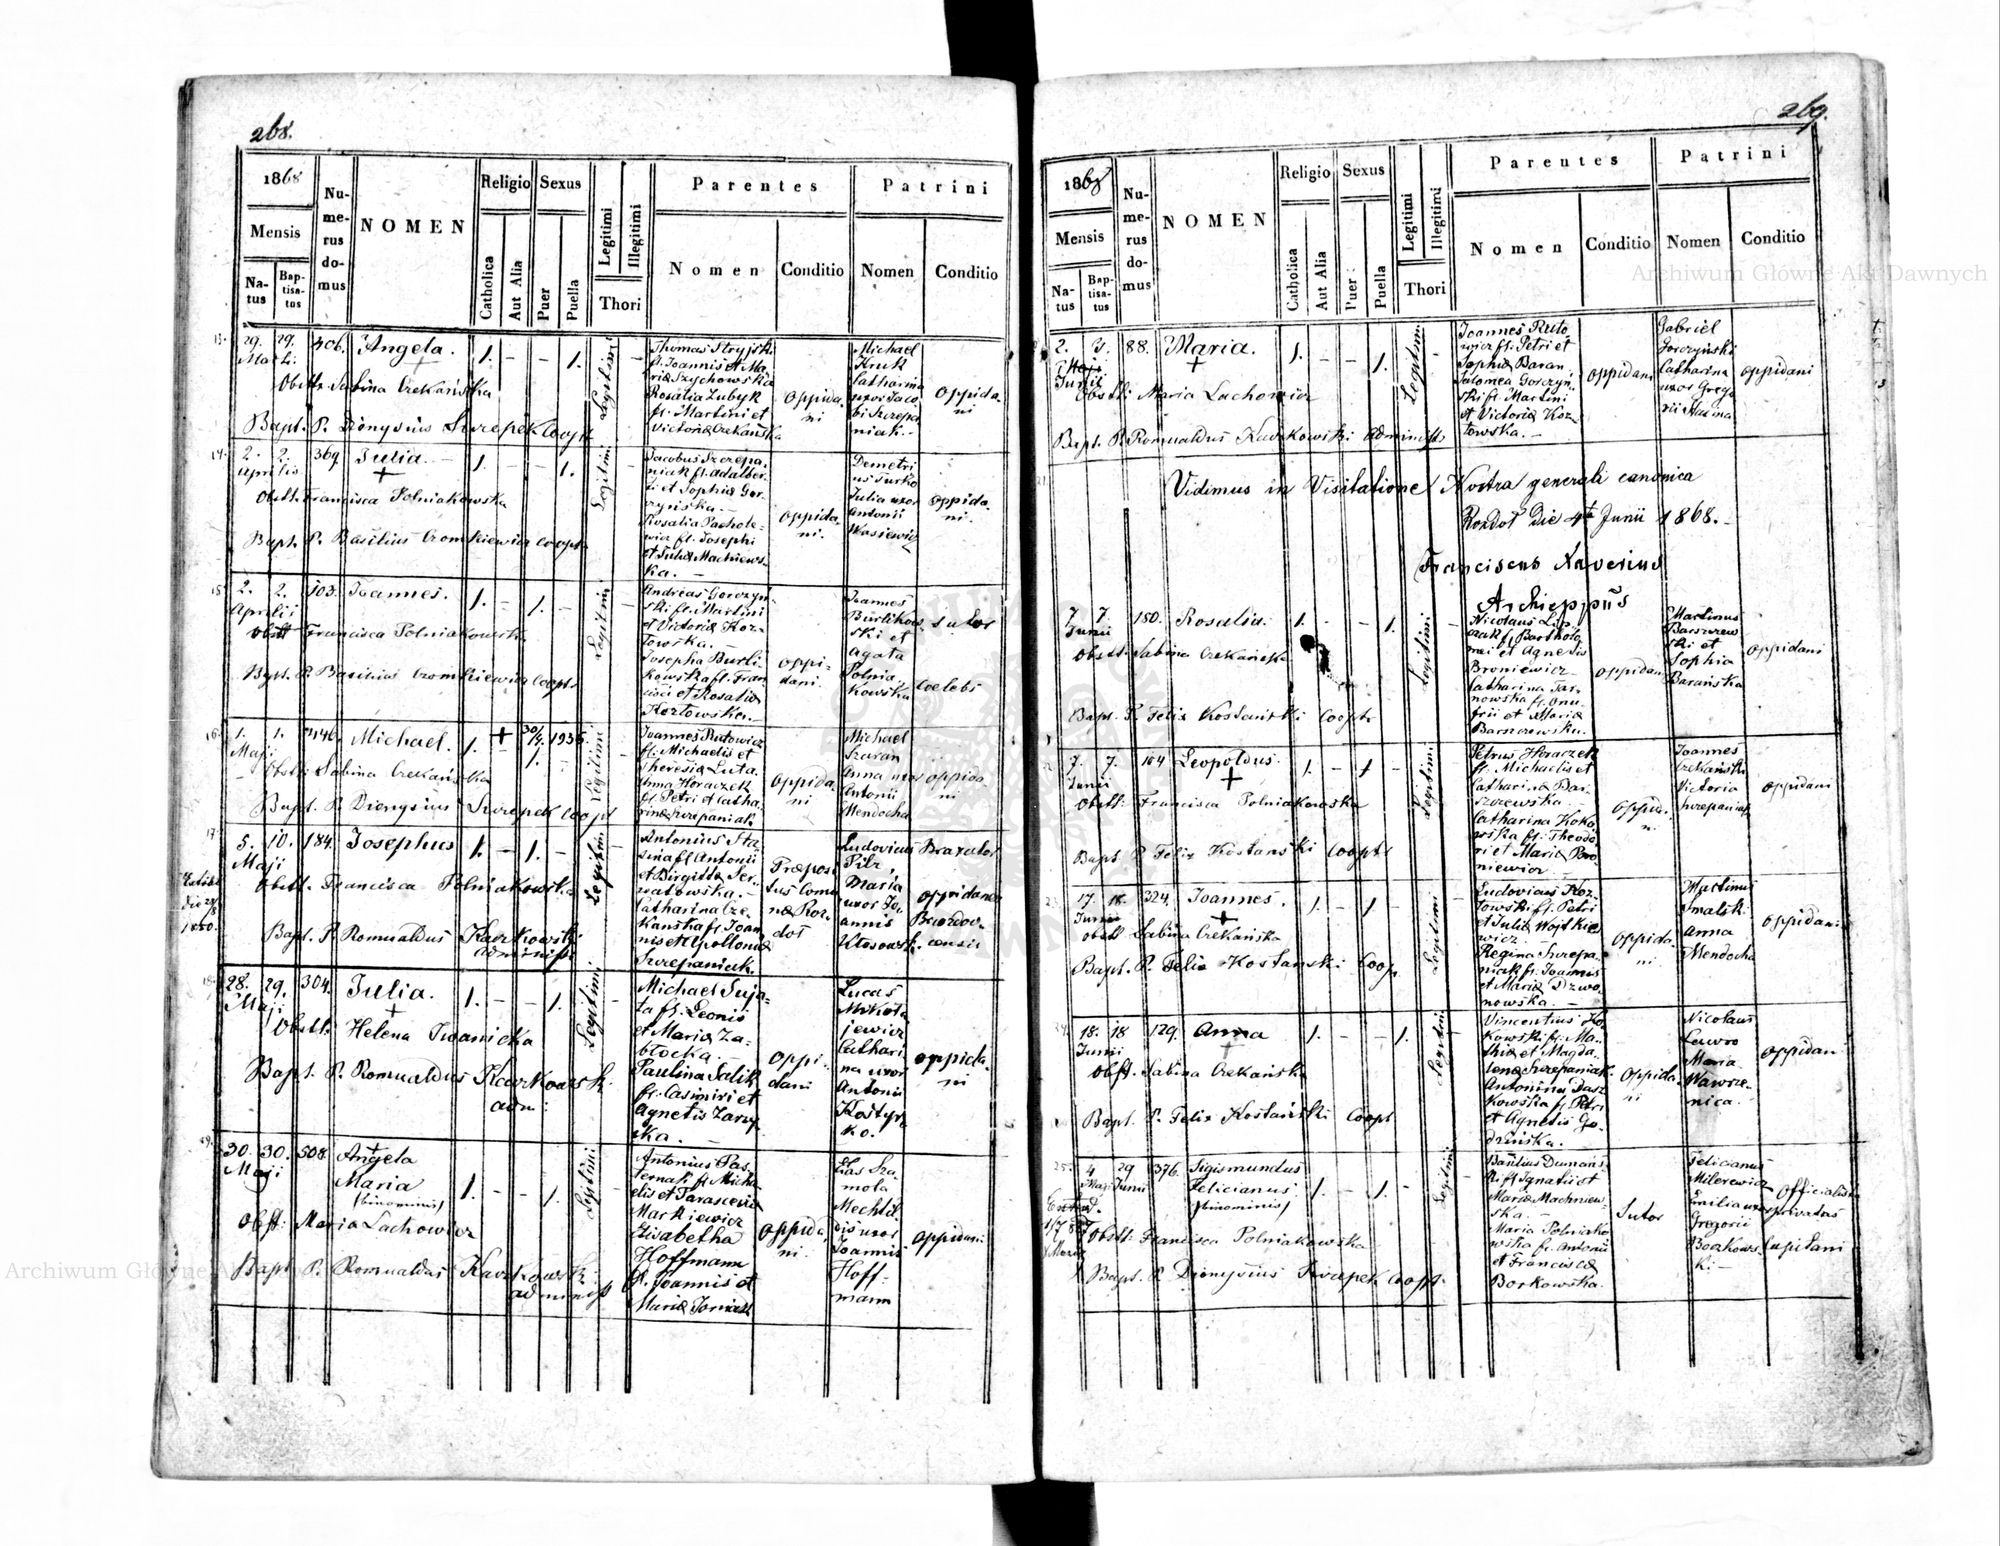 268.
1868
Mensis
Natus
Baptisatus
Numerus domus
NOMEN
Religio
Catholica
Aut Alia
Sexus
Puer
Puella
Legitimi
Illegitimi
Thori
Parentes
Nomen
Conditio
Patrini
Nomen
Conditio
29. 29. 406. Angela. 1. – – 1.
Obstt. Sabina Czekańska
Bapt. P. Dionysius Szczepek Coop
Legitimi
Thomas Stryjski
fl. Joannis et Ma-
riæ Szychowska
Rosalia Zubyk
fl. Martini et
Victoriæ Czekańska
Oppida-
ni
Michael
Kruk
Catharina
uxor Jaco-
bi Szczepa-
niak.
Oppida-
ni
2. 2. 369. Julia. 1. – – 1.
Aprilis
Obstt. Francisca Polniakowska
Bapt. P. Basilius Gromkiewicz coop
Legitimi
Jacobus Szczepa-
niak fl. Adalber-
ti et Sophiæ Gor-
czyńska.
Rosalia Pachole-
wicz fl. Josephi
et Juliæ Machiews-
ka.
Oppida-
ni.
Demetri-
us Turko
Julia uxor
Antonii
Wasiewicz
Oppida-
ni.
2. 2. 103. Joannes. 1. – 1. –
Aprilis
Obstt Francisca Polniakowska
Bapt. P. Basilius Gromkiewicz Coop
Legitimi
Andreas Gorczyn-
ski fl. Martini
et Victoriæ Koz-
łowska.
Josepha Burli-
kowska fl. Fran-
cisci et Rosaliæ
Kozłowska.
Oppi-
dani
Joannes
Burlikow-
ski et
Agata
Polnia-
kowska
Sutor
Coelebs
1. 1. 446. Michael. 1. + 30/4. 1935
Maji
Obstt. Sabina Czekańska
Bapt. P. Dionysius Szczepek coop
Legitimi
Joannes Rutowicz
fl. Michaelis et
Theresiæ Luta.
Anna Horaczek
fl. Petri et Catha-
rinæ Szczepaniak
Oppida-
ni
Michael
Szaran
Anna uxor
Antonii
Mendocha
Oppida-
ni
5. 10. 184. Josephus 1. – 1. –
Maji
Obstt. Francisca Polniakowska
Bapt. P. Romualdus Kaczkowski
administ
Legitimi
Antonius Sta-
sina fl Antonii
et Birgittæ Ser-
watowska.
Catharina Cze-
kańska fl. Joan-
nis et Apolloniæ
Szczepaniak.
Præposi-
tus Comu-
næ Roz-
doł
Ludovicus
Pilz
Maria
uxor Jo-
annis
Kłosowsk
Braxator
oppidanus
28. 29. 304. Julia. 1. – – 1.
Maji
Obstt. Helena Iwanicka
Bapt. P. Romualdus Kaczkowski
adm:
Legitimi
Michael Suja-
ta fl. Leonis
et Mariæ Za-
błocka.
Paulina Salik
fl. Casimiri et
Agnetis Zaryc-
ka.
Oppi-
dani
Lucas
Mikoła-
jewicz
Cathari-
na uxor
Antonii
Kostyr-
ko.
oppida-
ni
30. 30. 508. Angela
Maji Maria 1. – – 1.
(binominis)
Obst: Maria Lachowicz
Bapt. P. Romualdus Kaczkowski
administ
Legitimi
Antonius Pas-
ternak fl. Micha-
elis et Parasceviæ
Markiewicz
Elisabetha
Hoffmann
fl. Joannis et
Mariæ
Oppida-
ni.
Elias Sza-
mola
Mechtil-
dis uxor
Joannis
Hoff-
mann
Oppidani
269.
1868
Mensis
Natus
Baptisatus
Numerus domus
NOMEN
Religio
Catholica
Aut Alia
Sexus
Puer
Puella
Legitimi
Illegitimi
Thori
Parentes
Nomen
Conditio
Patrini
Nomen
Conditio
2. 3. 88. Maria. 1. – – 1.
Junii
Obstt: Maria Lachowicz
Bapt. P. Romualdus Kaczkowski administ
Legitimi
Joannes Ruto-
wicz fl. Petri et
Sophiæ Baran.
Salomea Gorczyn-
ski fl. Martini
et Victoriæ Koz-
łowska.
oppidani
Gabriel
Gorczyński
Catharina
uxor Grego-
rii
oppidani
Vidimus in Visitatione Nostra generali canonica
Rozdoł die 4ta Junii 1868.
Franciscus Xaverius
Archieppus
7. 7. 180. Rosalia. 1. – – 1.
Junii
Obstt. Sabina Czekańska
Bapt. P. Felix Kostański Coop
Legitimi
Nicolaus Lip-
czak fl. Bartholo-
mei et Agnetis
Broniewicz
Catharina Tar-
nowska fl. Onu-
frii et Mariæ
Barszczewska.
oppidani
Martinus
Barszczew-
ski et
Sophia
Barańska
oppidani
7. 7. 104 Leopoldus. 1. – 1 –
Junii
Obstt: Francisca Polniakowska
Bapt. P. Felix Kostański Coop
Legitimi
Petrus Horaczek
fl. Michaelis et
Catharinæ Bar-
szczewska.
Catharina Koko-
wska fl. Theodo-
ri et Mariæ Bro-
niewicz
oppida-
ni
Joannes
Czekański
Victoria
Szczepaniak
oppidani
17. 18. 324. Joannes. 1. – 1 –
Junii
Obstt Sabina Czekańska
Bapt. P. Felix Kostański Coop
Legitimi
Ludovicus Koz-
łowski fl. Petri
et Juliæ Wojtkie-
wicz.
Regina Szczepa-
niak fl. Joannis
et Mariæ Dzwo-
nowska.
Oppida-
ni
Martinus
Smalski
Anna
Mendocha
oppidani
18. 18 129. Anna 1. – – 1.
Junii
Obst. Sabina Czekańska
Bapt. P. Felix Kostański Coop
Legitimi
Vincentius Ko-
kowski fl. Ma-
thiæ et Magda-
lenæ Szczepaniak
Antonina Dasz-
kowska fl. Petri
et Agnetis Go-
dzińska.
Oppida-
ni
Nicolaus
Lawro
Maria
Wawrze-
nica.
oppidani
4 29 376. Sigismundus
Maji Junii Felicianus 1. – 1. –
(binominis)
Obstt: Francisca Polniakowska
Bapt. P. Dionysius Szczepek Coop.
Legitimi
Basilius Dumańs-
ki fl. Ignatii et
Mariæ Machniew-
ska.
Maria Polniako-
wska fl. Antonii
et Franciscæ
Borkowska.
Sutor
Felicianus
Milerewicz
Emilia uxor
Gregorii
Borkows-
ki.
Officialis
privatus
Archiwum Główne Akt Dawnych
Archiwum Główne Akt Dawnych